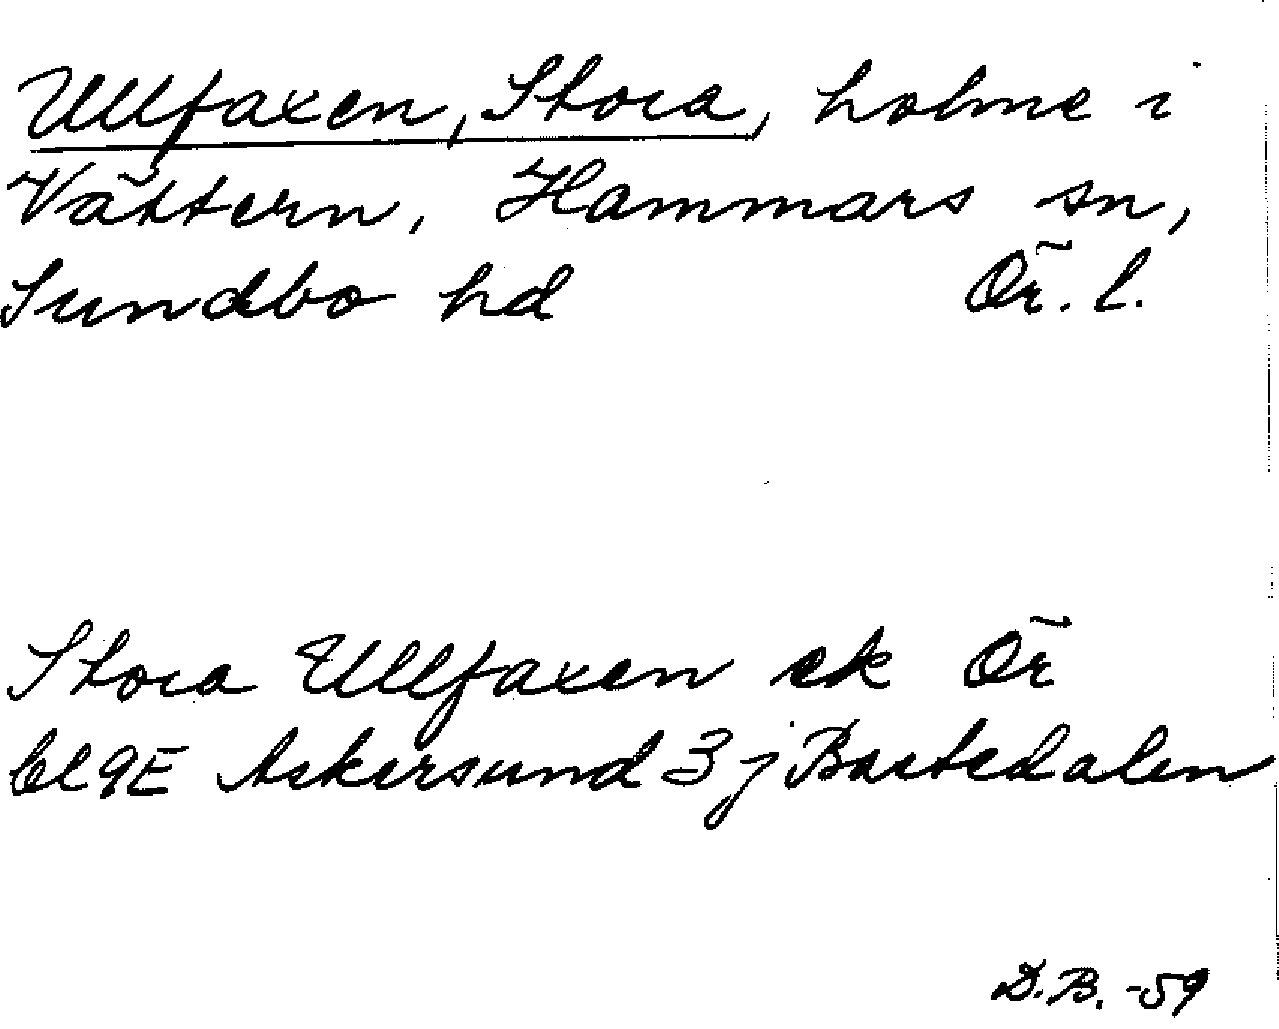 Ullfaxen, Stora, holme i
Vättern, Hammars sn,
Sundbo hd Ör. l.
Stora Ullfaxen ek Ör
bl 9E Askersund 3 j Bastedalen
D.B. -59